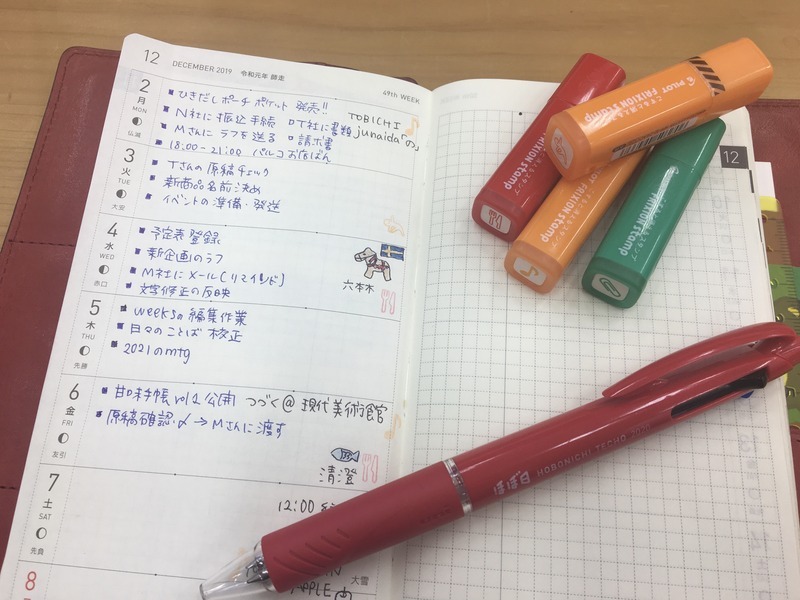 12 DECEMBER 2019 令和元年 師走
49th WEEK
2
月
MON
仏滅
ひきだしポーチ ポケット 発売!!
N社に振込手続 ロT社に書類
Mさんに ラフを送る ロ請求書
18:00-21:00 パルコお店ばん
TOBICHI
junaida「の」
3
火
TUE
大安
Tさんの原稿チェック
新商品名前決め
イベントの準備・発送
4
水
WED
赤口
予定表登録
新企画のラフ
M社にメール(リマインド)
文字修正の反映
六本木
5
木
THU
先勝
weeksの編集作業
日々のことば 校正
2021のmtg
6
金
FRI
友引
甘味手帳 vol.1公開
つづく@現代美術館
原稿確認・〆→Mさんに渡す
清澄
7
土
SAT
先負
12:00
8
大雪
APPLE
12
PILOT FRIXION stamp
FRIXION stamp
FRIXION stamp
FRIXION stamp
ほぼ日 HOBONICHI TECHO 2020